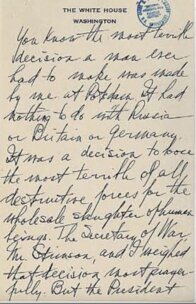 THE WHITE HOUSE
WASHINGTON
You know the most terrible
decision a man ever
had to make was made
by me at Potsdam. It had
nothing to do with Russia
or Britain or Germany.
It was a decision to loose
the most terrible of all
destructive forces for the
wholesale slaughter of human
beings. The Secretary of War,
Mr. Stimson, and I weighed
that decision most prayer
fully. But the President